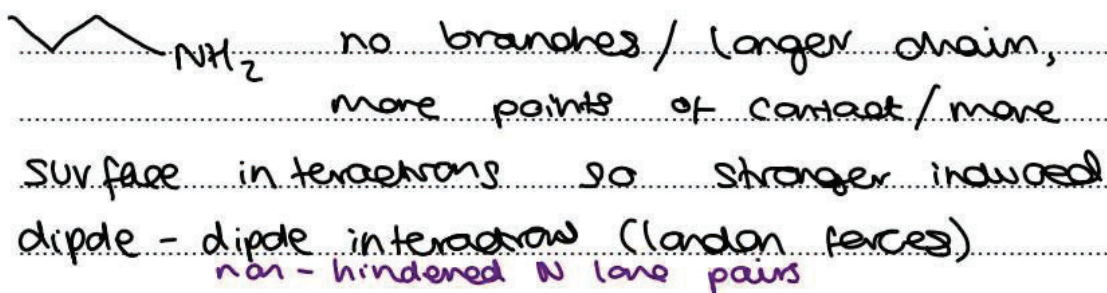 NH2 no branches / longer chain,
more points of contact / more
surface interactions so stronger induced
dipole - dipole interactions (london forces)
non-hindered N lone pairs